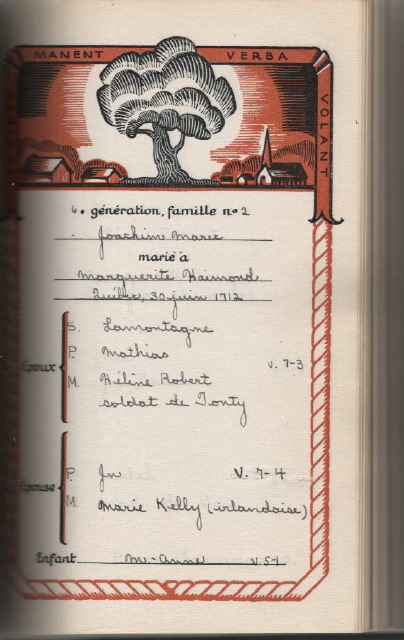 MANENT VERBA VOLANT
6. génération, famille no 2
Joachim Marie
marié à
Marguerite Haimond
Québec, 30 juin 1712
S. Lamontagne
P. Mathias
v. 7-3
Époux
M. Hélène Robert
soldat de Tonty
P. Jn V. 7-4
Épouse
M. Marie Kelly (irlandaise)
Enfant M.-Anne v. 5-1